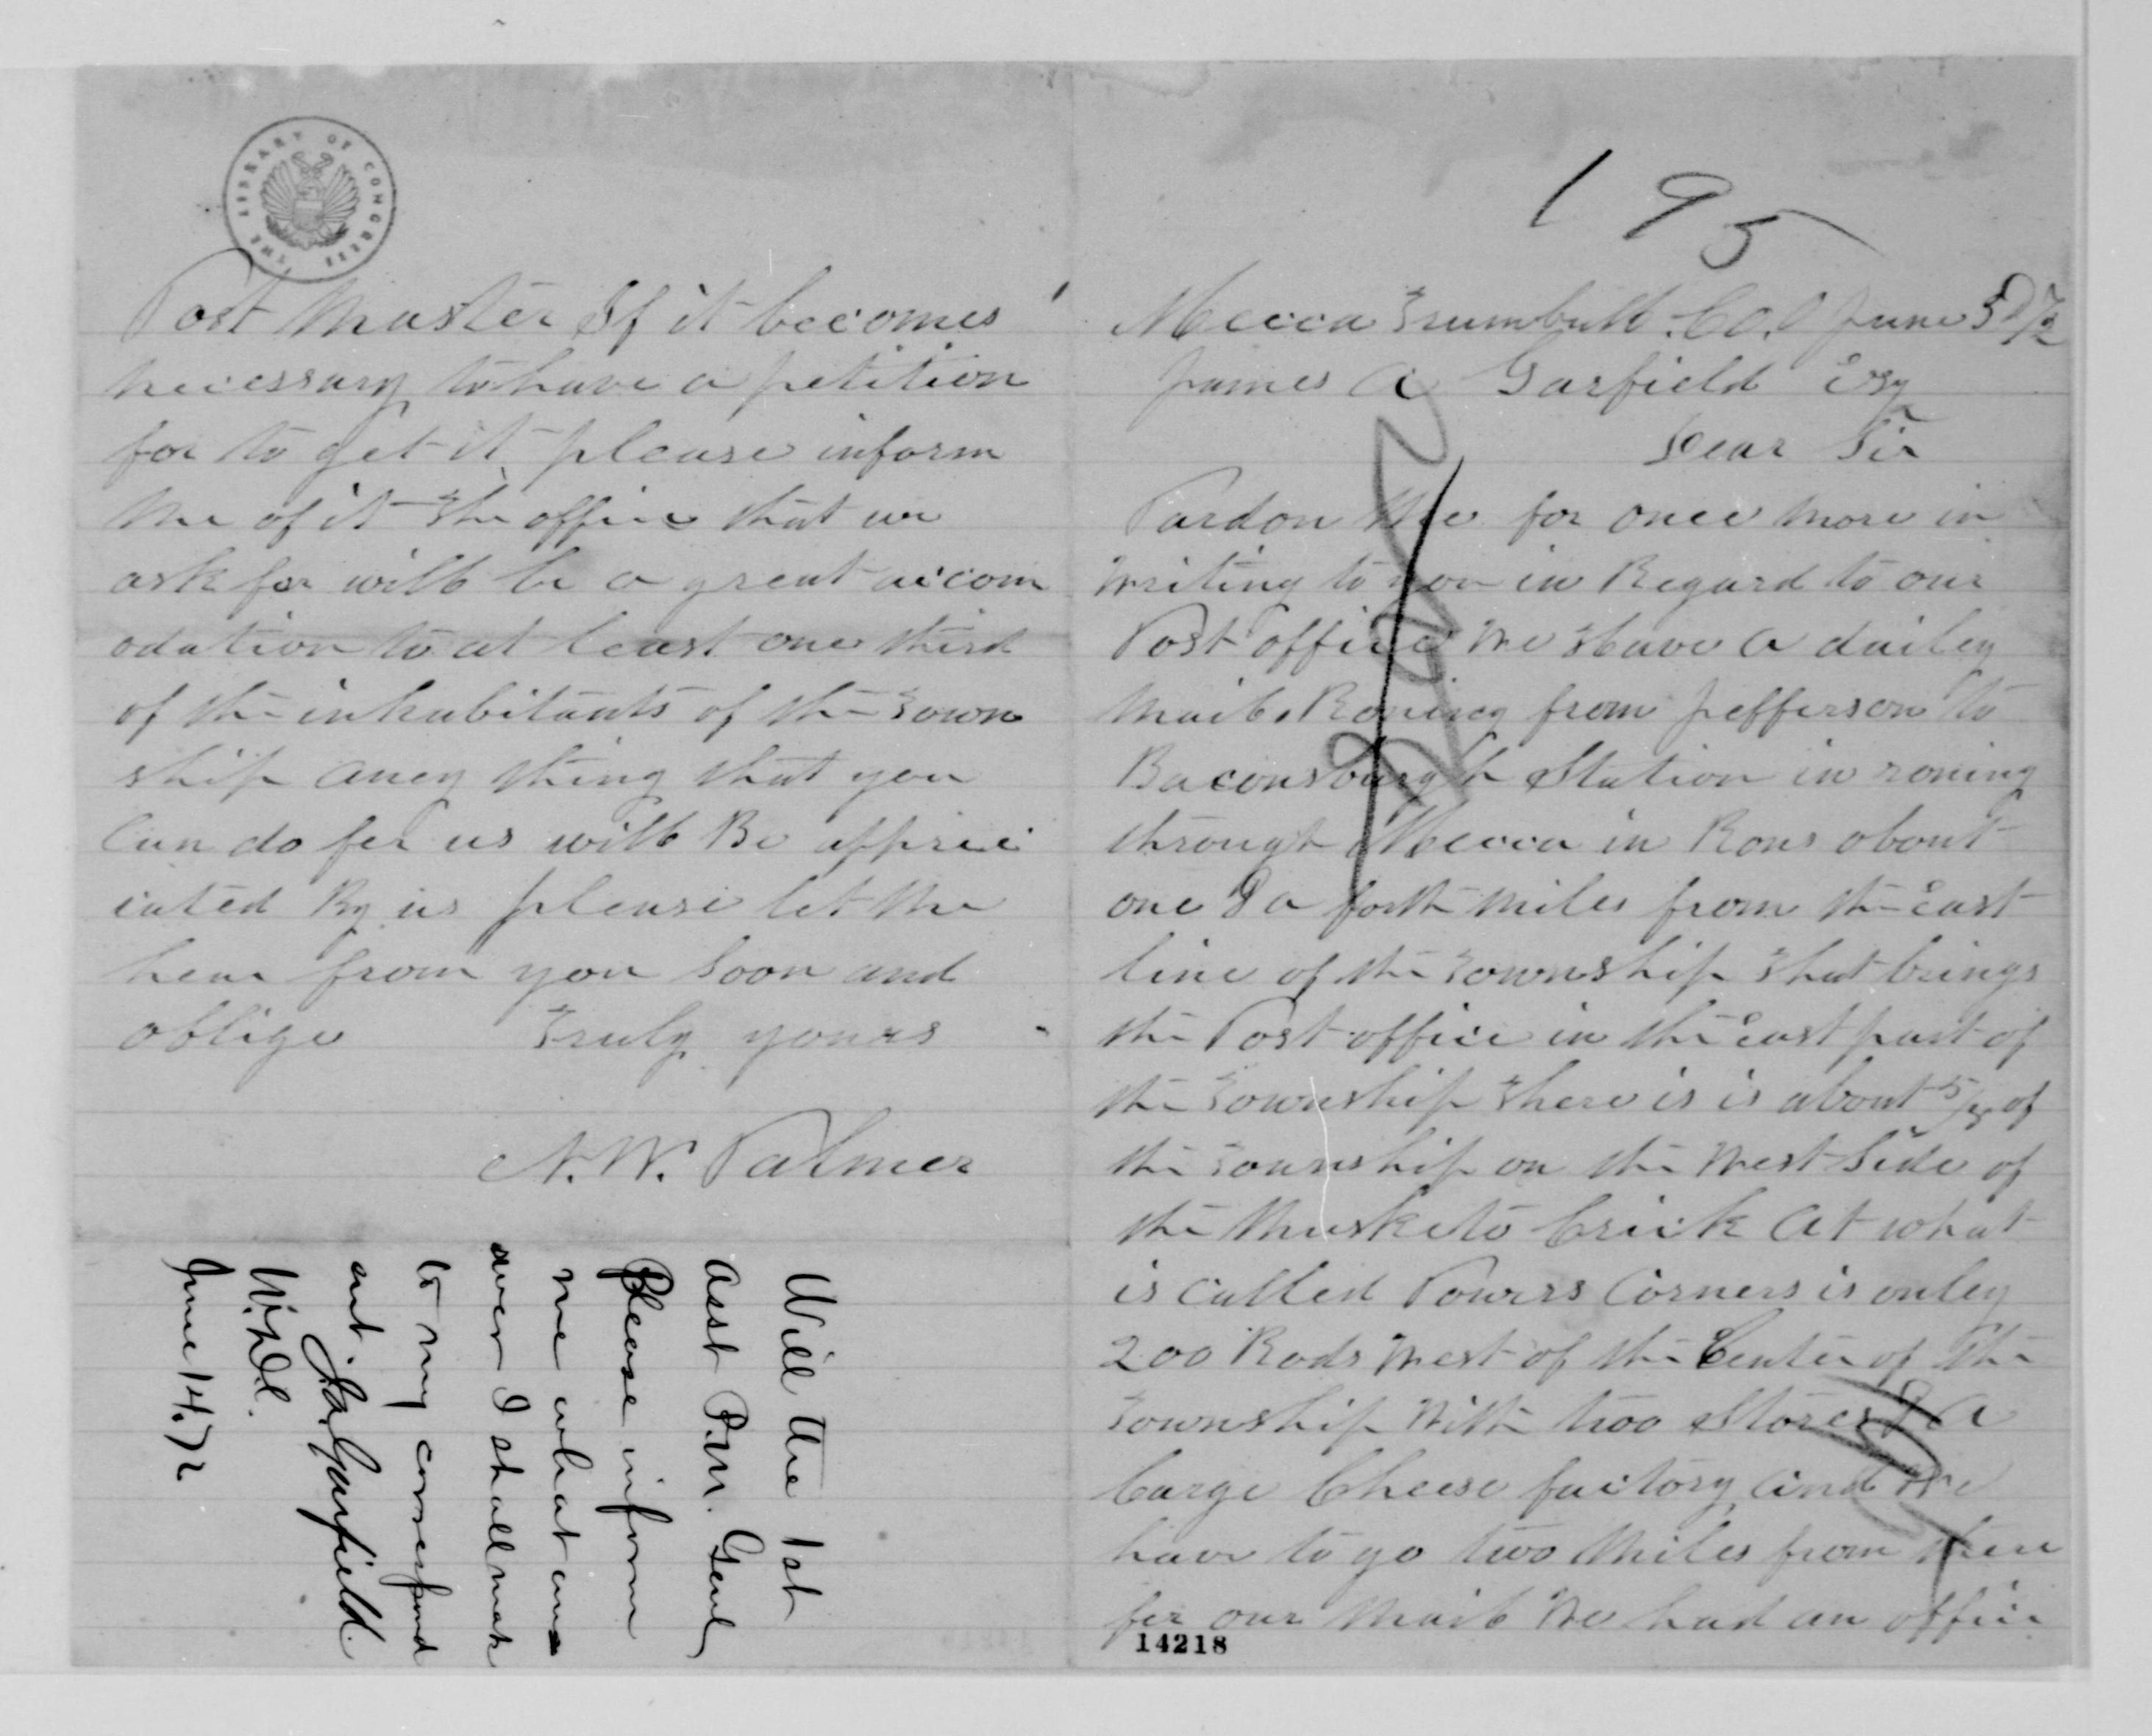 195
Mecca Trumbull Co. O June 5th/72
James A Garfield Esq
Dear Sir
Pardon Me for once more in
writing to you in Regard to our
Post office We Have a dailey
Mail Roning from Jefferson to
Baconsburgh Station in roning
througt Mecca in Rons about
one & a forth miles from the East
line of the Township That brings
the Post office in the East part of
the Township There is is about
of
the Township on the West Side of
the Musketo Crick At what
is Called Powers Corners is onley
200 Rods West of the Center of the
Township With two Stores & A
Large Cheese factory And We
have to go two Miles from there
for our Mail We had an office
14218
THE LIBRARY OF CONGRESS
Post Master If it becomes
necessary to have a petition
for to get it please inform
Me of it The office that we
ask for will be a great accom
odation to at least one third
of the inhabitants of the Town
ship Aney thing that you
Can do for us will Be apprici
iated By us please let Me
hear from you Soon and
oblige Truly yours
N. W. Palmer
Will the 1st
Asst P.M. Genl
Please inform
me what ans
swer I shall make
to my correspond
ent. J.A. Garfield.
June 14. 72